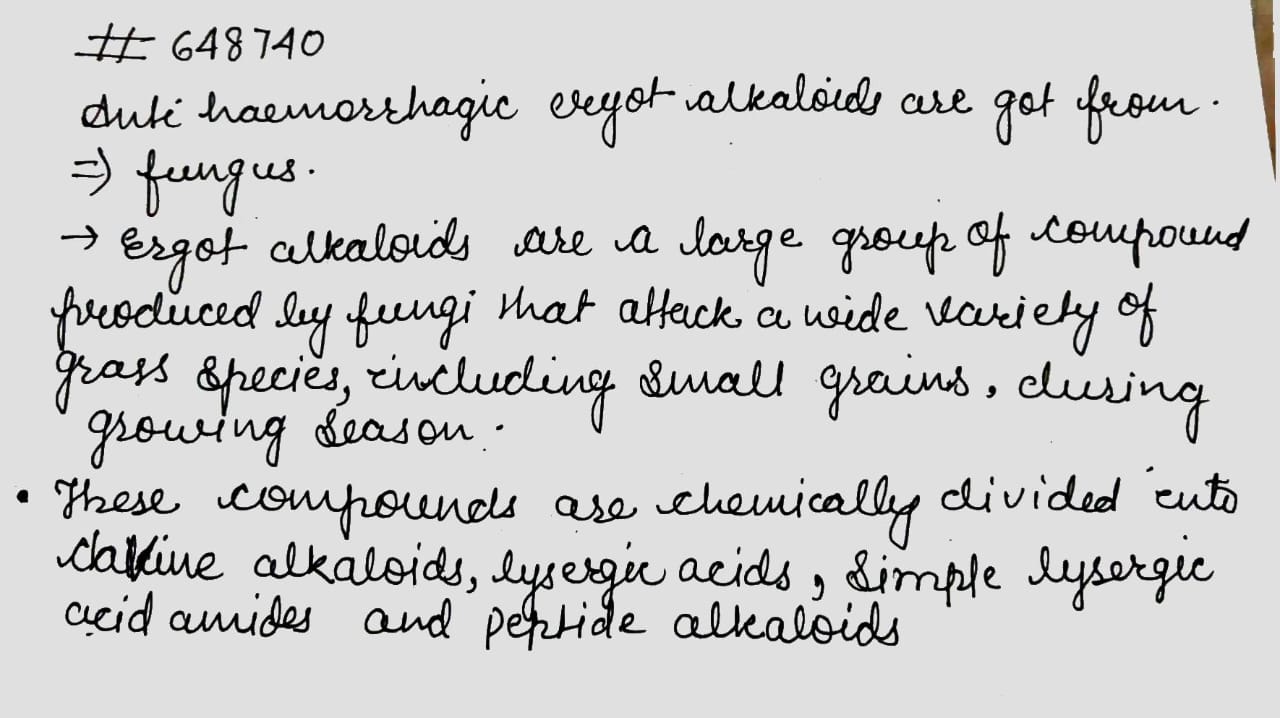 # 648740
Anti haemorrhagic ergot alkaloids are got from.
⇒ fungus.
→ Ergot alkaloids are a large group of compound
produced by fungi that attack a wide variety of
grass species, including small grains, during
growing season.
• These compounds are chemically divided into
clavine alkaloids, lysergic acids, simple lysergic
acid amides and peptide alkaloids